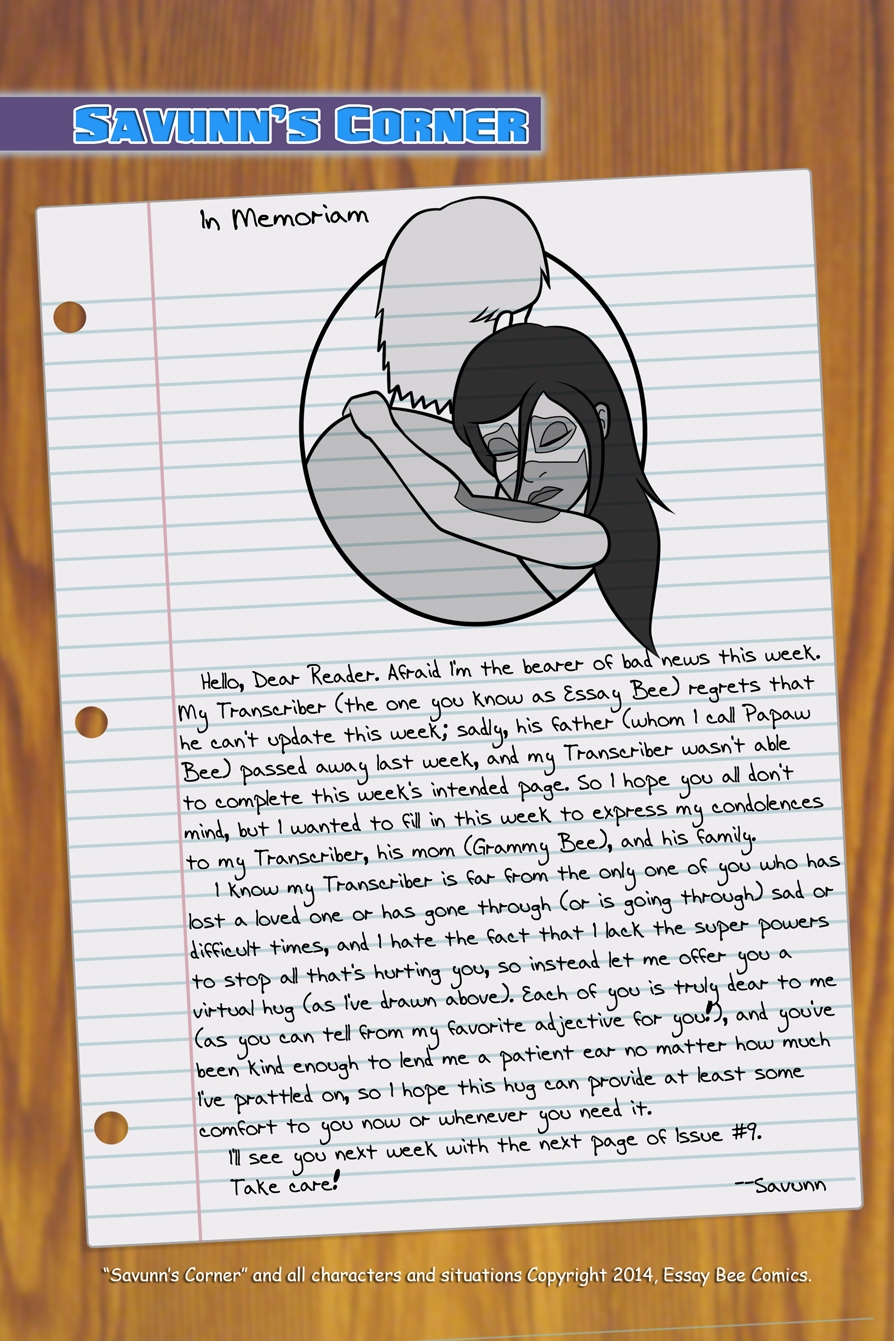 Savunn's Corner
In Memoriam
Hello, Dear Reader. Afraid I'm the bearer of bad news this week.
My Transcriber (the one you know as Essay Bee) regrets that
he can't update this week; sadly, his father (whom I call Papaw
Bee) passed away last week, and my Transcriber wasn't able
to complete this week's intended page. So I hope you all don't
mind, but I wanted to fill in this week to express my condolences
to my Transcriber, his mom (Grammy Bee), and his family.
I know my Transcriber is far from the only one of you who has
lost a loved one or has gone through (or is going through) sad or
difficult times, and I hate the fact that I lack the super powers
to stop all that's hurting you, so instead let me offer you a
virtual hug (as I've drawn above). Each of you is truly dear to me
(as you can tell from my favorite adjective for you!), and you've
been kind enough to lend me a patient ear no matter how much
I've prattled on, so I hope this hug can provide at least some
comfort to you now or whenever you need it.
I'll see you next week with the next page of Issue #9.
Take care!
--Savunn
"Savunn's Corner" and all characters and situations Copyright 2014, Essay Bee Comics.